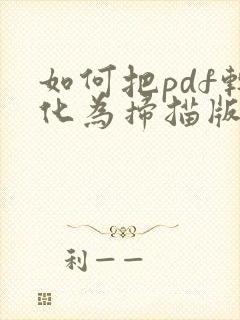 如何把pdf轉
化為掃描版
利一一